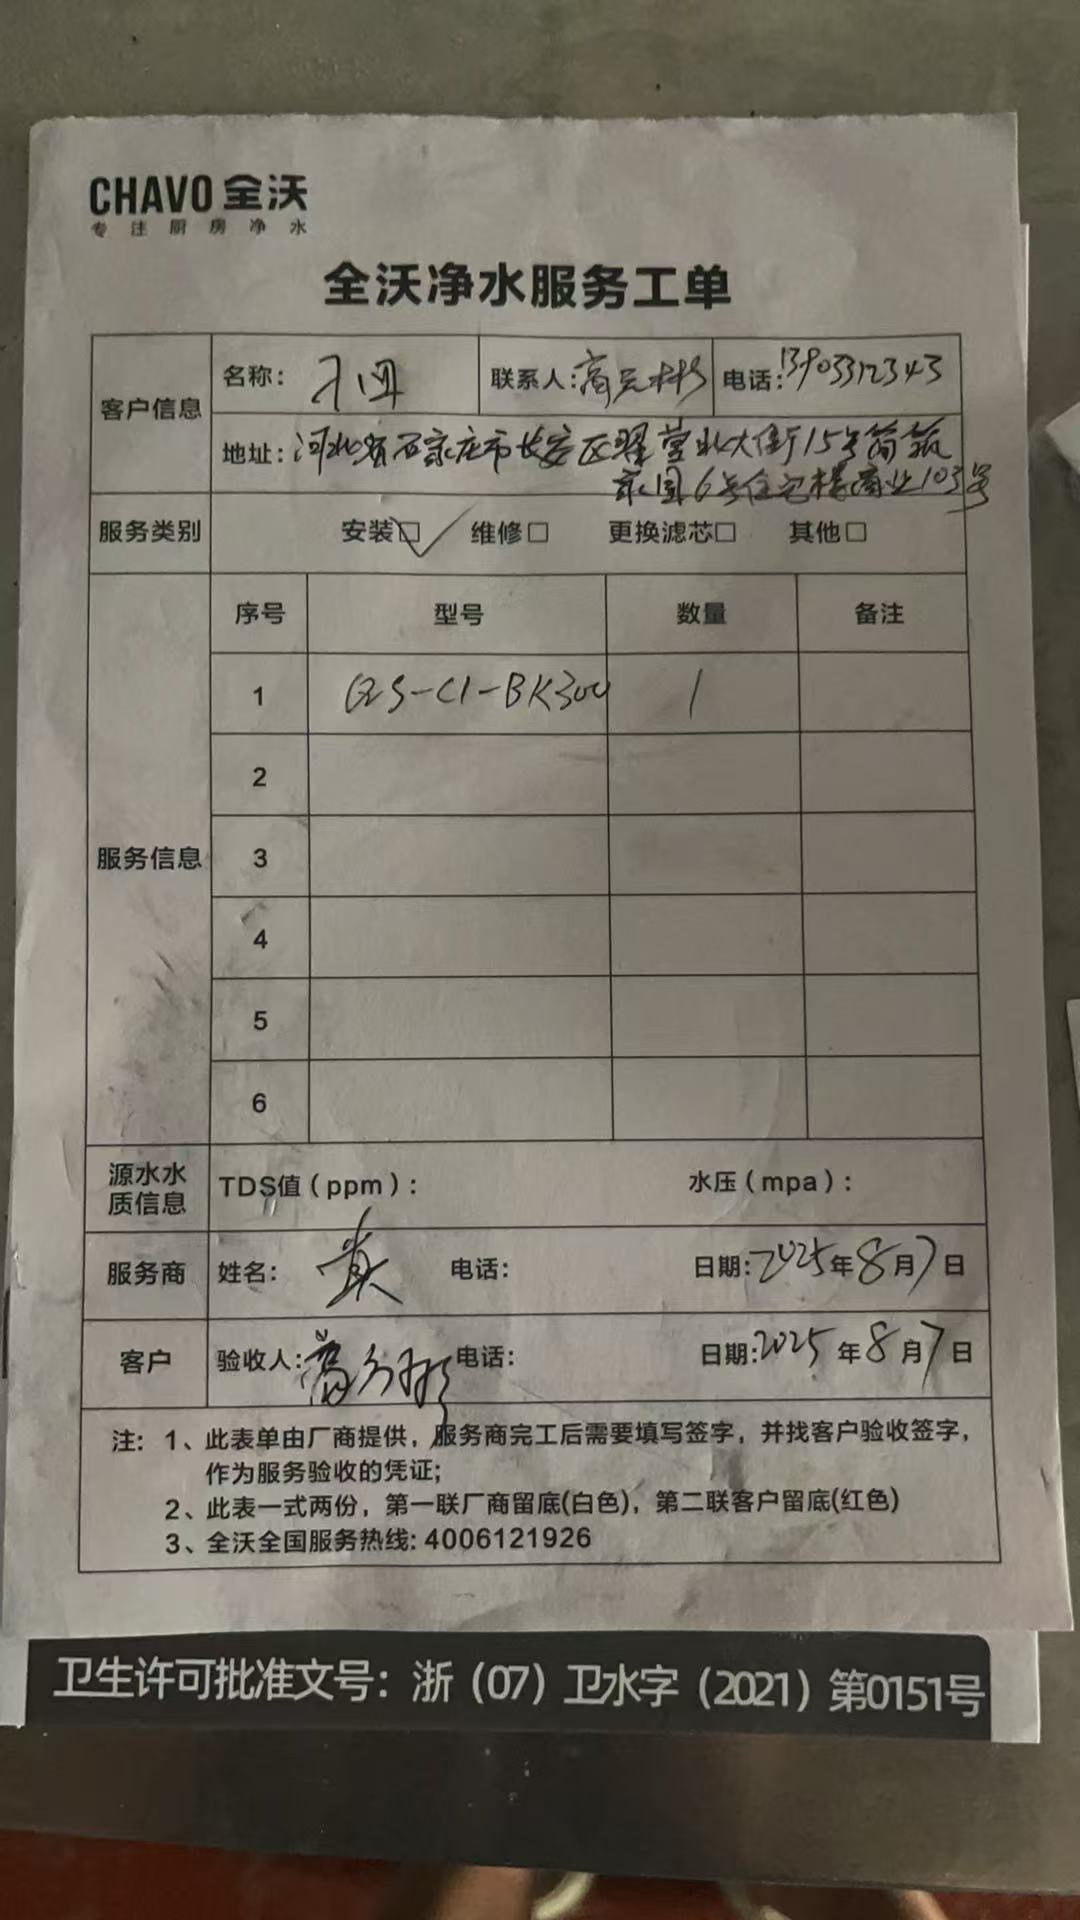 CHAVO 全沃
专注厨房净水
全沃净水服务工单
客户信息
名称：
联系人：高
电话：13903312343
地址：河北省石家庄市长安区翟营北大街15号筑
家园6号住宅楼商业103号
服务类别 安装☑ 维修□ 更换滤芯□ 其他□
服务信息
序号 型号 数量 备注
1 QZS-C1-BK300 1
2
3
4
5
6
源水水质信息 TDS值（ppm）： 水压（mpa）：
服务商 姓名： 电话： 日期：2025年8月7日
客户 验收人：高 电话： 日期：2025年8月7日
注：1、此表单由厂商提供，服务商完工后需要填写签字，并找客户验收签字，
作为服务验收的凭证；
2、此表一式两份，第一联厂商留底(白色)，第二联客户留底(红色)
3、全沃全国服务热线：4006121926
卫生许可批准文号：浙（07）卫水字（2021）第0151号